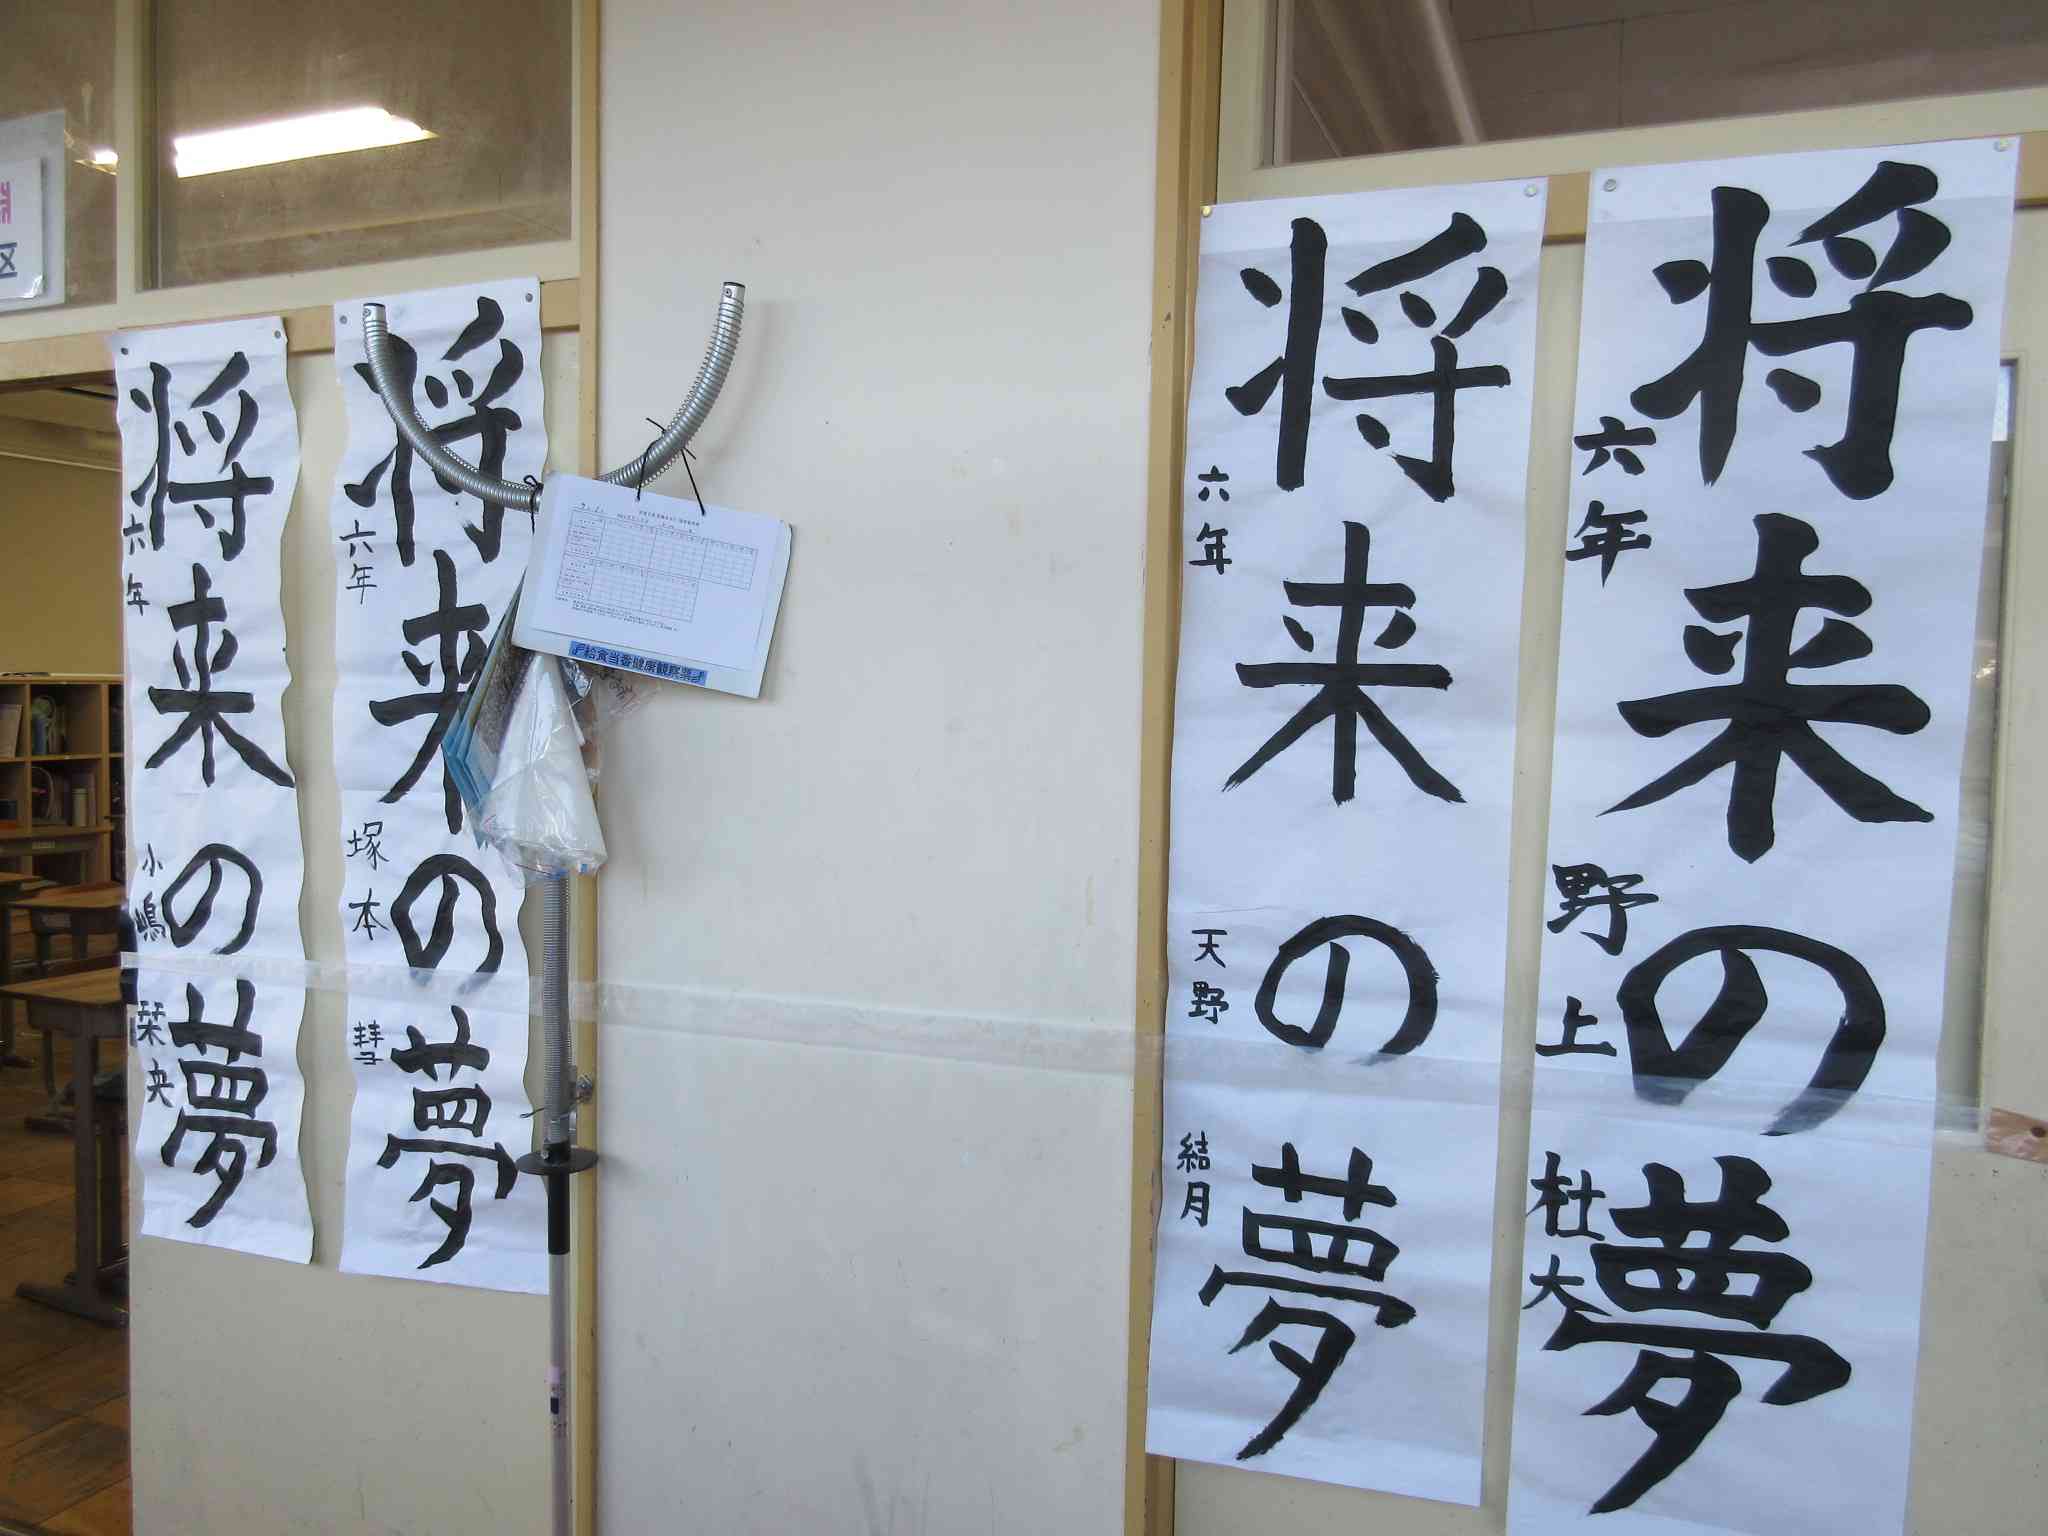 将来の夢
六年 野上 杜大
将来の夢
六年 天野 結月
♪給食当番健康観察票♪
将来の夢
六年 塚本 彗
将来の夢
六年 小嶋 栞央
区